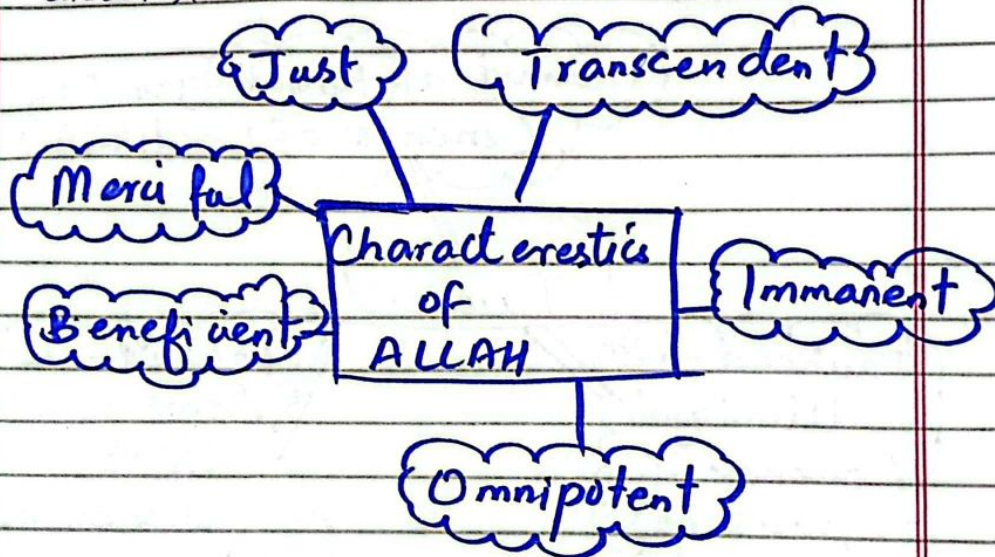 Just
Transcendent
Merciful
Characterestics
of
ALLAH
Immanent
Beneficient
Omnipotent